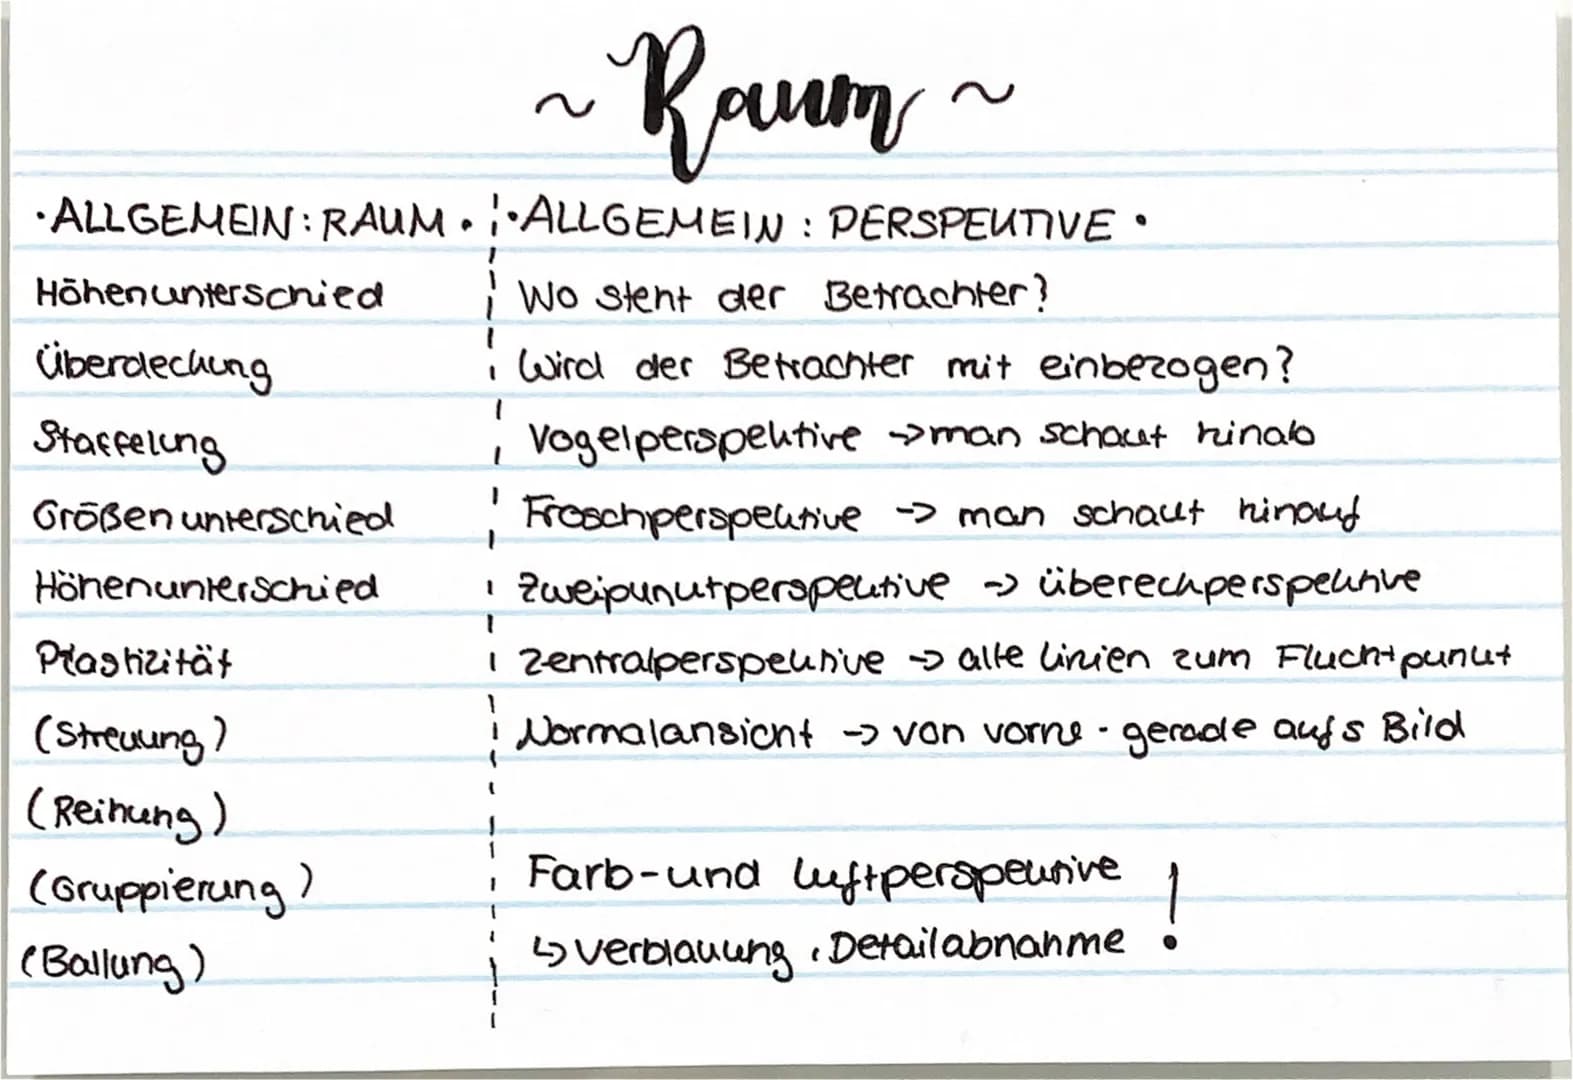 ~ Raum ~
· ALLGEMEIN: RAUM ·
Höhenunterschied
Überdeckung
Staffelung
Größenunterschied
Höhenunterschied
Plastizität
(Streuung)
(Reihung)
(Gruppierung)
(Ballung)
· ALLGEMEIN: PERSPEKTIVE ·
Wo steht der Betrachter?
Wird der Betrachter mit einbezogen?
Vogelperspektive → man schaut hinab
Froschperspektive → man schaut hinauf
Zweipunktperspektive → Übereckperspektive
Zentralperspektive → alle Linien zum Fluchtpunkt
Normalansicht → von vorne - gerade aufs Bild
Farb- und Luftperspektive !
↳ Verblauung, Detailabnahme